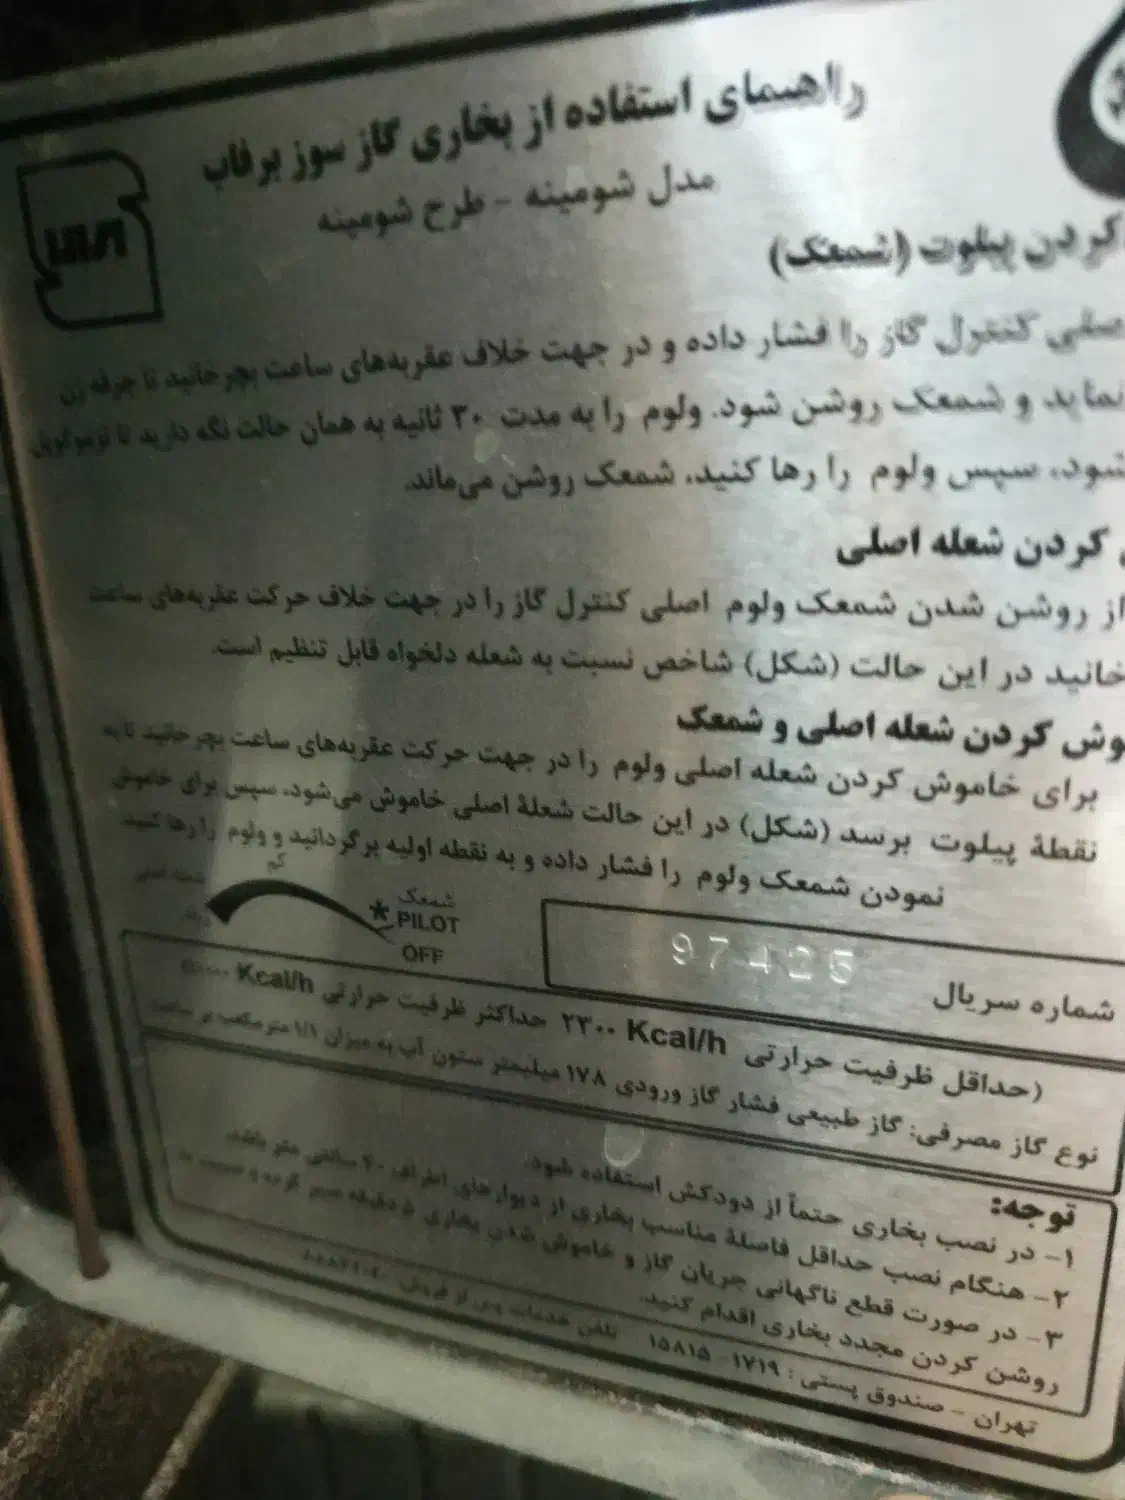 راهسمای استفاده از بخاری گاز سوز برفاب
مدل شومینه - طرح شومینه
کردن پیلوت (شمعک)
صلی کنترل گاز را فشار داده و در جهت خلاف عقربه‌های ساعت بچرخانید تا جرقه زن
نماید و شمعک روشن شود. ولوم را به مدت ۳۰ ثانیه به همان حالت نگه دارید تا ترموکوپل
شود، سپس ولوم را رها کنید، شمعک روشن می‌ماند.
کردن شعله اصلی
از روشن شدن شمعک ولوم اصلی کنترل گاز را در جهت خلاف حرکت عقربه‌های ساعت
خانید در این حالت (شکل) شاخص نسبت به شعله دلخواه قابل تنظیم است.
وش کردن شعله اصلی و شمعک
برای خاموش کردن شعله اصلی ولوم را در جهت حرکت عقربه‌های ساعت بچرخانید تا به
نقطهٔ پیلوت برسد (شکل) در این حالت شعلهٔ اصلی خاموش می‌شود، سپس برای خاموش
نمودن شمعک ولوم را فشار داده و به نقطه اولیه برگردانید و ولوم را رها کنید.
شعله اصلی
کم
زیاد
شمعک
PILOT
OFF
شماره سریال
97425
(حداقل ظرفیت حرارتی ۲۳۰۰ Kcal/h حداکثر ظرفیت حرارتی Kcal/h
نوع گاز مصرفی: گاز طبیعی فشار گاز ورودی ۱۷۸ میلیمتر ستون آب به میزان ۱/۱ متر مکعب بر ساعت
توجه:
۱- در نصب بخاری حتماً از دودکش استفاده شود.
۲- هنگام نصب حداقل فاصلهٔ مناسب بخاری از دیوارهای اطراف ۴۰ سانتی متر باشد.
۳- در صورت قطع ناگهانی جریان گاز و خاموش شدن بخاری ۵ دقیقه صبر کرده و نسبت به
روشن کردن مجدد بخاری اقدام کنید.
تهران - صندوق پستی: ۱۷۱۹-۱۵۸۱۵ تلفن خدمات پس از فروش